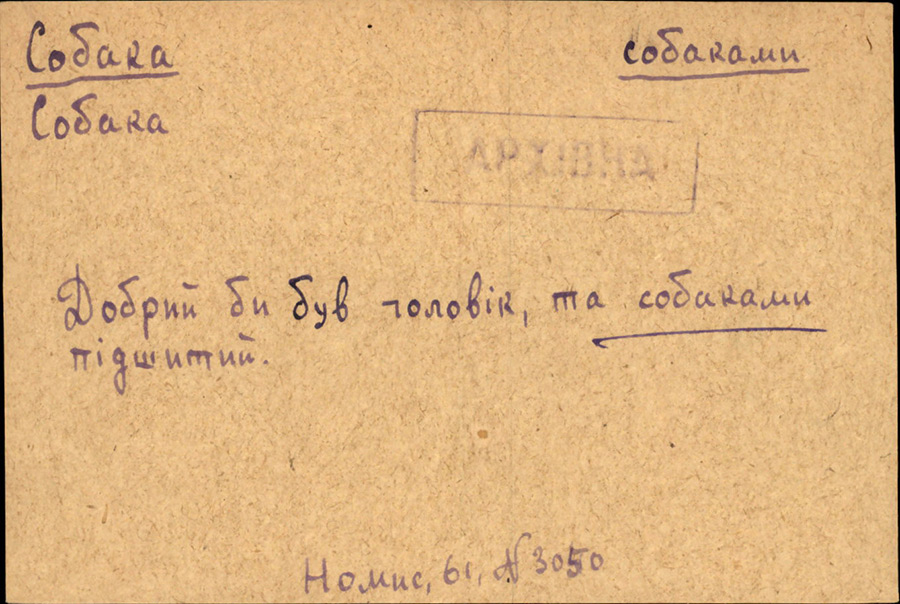 Собака собаками
Собака
АРХІВНА
Добрий би був чоловік, та собаками
підшитий.
Номис, 61, N 3050